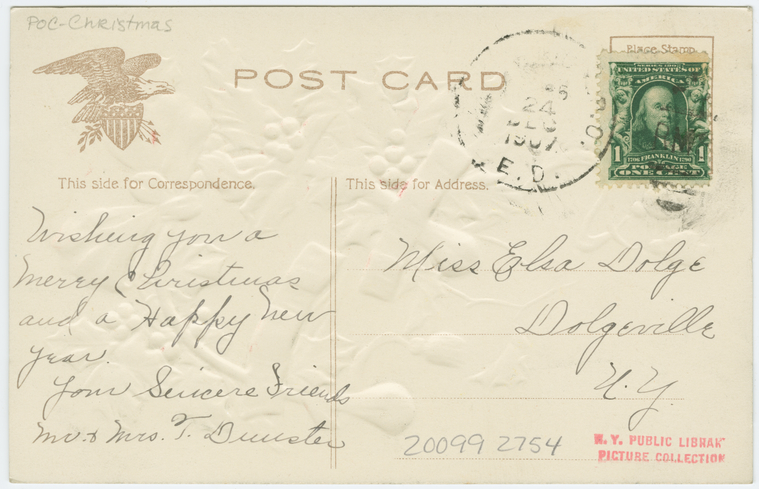 POC-Christmas
POST CARD
Place Stamp
24
DEC
1907
E.D.
SERIES 1902
UNITED STATES OF
AMERICA
1 1706 FRANKLIN 1790 1
POSTAGE
ONE CENT
This side for Correspondence.
This side for Address.
Wishing you a
Merry Christmas
and a Happy New
Year.
Your Sincere Friends
Mr. & Mrs. T.
Miss Elsa Dolge
Dolgeville
N.Y.
20099 2754
N.Y. PUBLIC LIBRAR
PICTURE COLLECTION